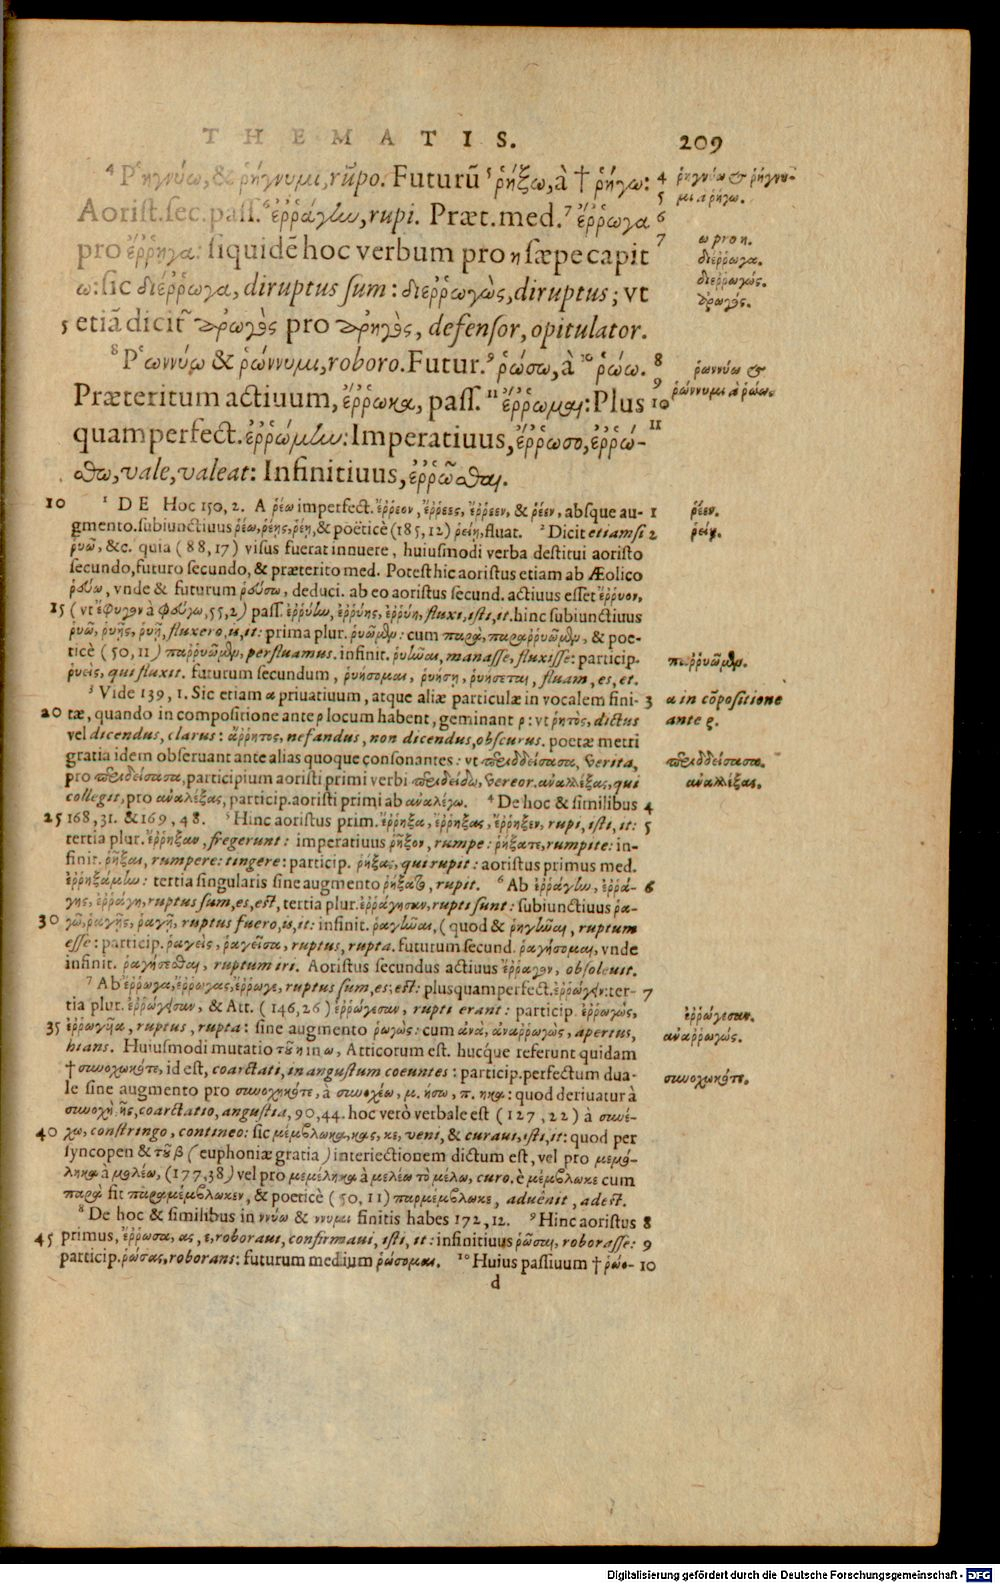 THEMATIS. 209
⁴ Ῥηγνύω, & ῥήγνυμι, rūpo. Futurū ⁵ ῥήξω, à † ῥήγω: 4 ῥηγνύω & ῥήγνυ-
5 μι à ῥήγω.
Aorist. sec. pass. ⁶ ἐῤῥάγην, rupi. Præt. med. ⁷ ἔῤῥωγα 6
pro ἔῤῥηγα: siquidē hoc verbum pro η sæpe capit 7 ω pro η.
διέῤῥωγα.
ω: sic διέῤῥωγα, diruptus sum: διεῤῥωγὼς, diruptus; vt διεῤῥωγώς.
ἀρωγός.
5 etiā dicitʳ ἀρωγὸς pro ἀρηγὸς, defensor, opitulator.
⁸ Ῥωννύω & ῥώννυμι, roboro. Futur. ⁹ ῥώσω, à ¹⁰ ῥώω. 8 ῥωννύω &
9 ῥώννυμι à ῥώω.
Præteritum actiuum, ἔῤῥωκα, pass. ¹¹ ἔῤῥωμαι: Plus 10
quamperfect. ἐῤῥώμην: Imperatiuus, ἔῤῥωσο, ἐῤῥώ- 11
σθω, vale, valeat: Infinitiuus, ἐῤῥῶσθαι.
10 ¹ DE Hoc 150, 2. A ῥέω imperfect. ἔῤῥεον, ἔῤῥεες, ἔῤῥεεν, & ῥέεν, absque au- 1 ῥέεν.
gmento. subiunctiuus ῥέω, ῥέῃς, ῥέῃ, & poëticè (185, 12) ῥείῃ, fluat. ² Dicit etiamsi 2 ῥείῃ.
ῥυῶ, &c. quia (88, 17) visus fuerat innuere, huiusmodi verba destitui aoristo
secundo, futuro secundo, & præterito med. Potest hic aoristus etiam ab Æolico
ῥεύω, vnde & futurum ῥεύσω, deduci. ab eo aoristus secund. actiuus esset ἔῤῥυον,
15 (vt ἔφυγον à φεύγω, 55, 2) pass. ἐῤῥύην, ἐῤῥύης, ἐῤῥύη, fluxi, isti, it. hinc subiunctiuus
ῥυῶ, ῥυῇς, ῥυῇ, fluxero, is, it: prima plur. ῥυῶμεν: cum παρὰ, παραῤῥυῶμεν, & poe-
ticè (50, 11) παῤῥυῶμεν, perfluamus. infinit. ῥυῆναι, manasse, fluxisse: particip. παῤῥυῶμεν.
ῥυεὶς, qui fluxit. futurum secundum, ῥυήσομαι, ῥυήσῃ, ῥυήσεται, fluam, es, et.
³ Vide 139, 1. Sic etiam α priuatiuum, atque aliæ particulæ in vocalem fini- 3 α in cōpositione
20 tæ, quando in compositione ante ρ locum habent, geminant ρ: vt ῥητὸς, dictus ante ρ.
vel dicendus, clarus: ἄῤῥητος, nefandus, non dicendus, obscurus. poetæ metri
gratia idem obseruant ante alias quoque consonantes: vt περιδδείσασα, verita, περιδδείσασα.
pro περιδείσασα, participium aoristi primi verbi περιδείδω, vereor. ἀναλλέξας, qui ἀναλλέξας.
collegit, pro ἀναλέξας, particip. aoristi primi ab ἀναλέγω. ⁴ De hoc & similibus 4
25 168, 31. & 169, 48. ⁵ Hinc aoristus prim. ἔῤῥηξα, ἔῤῥηξας, ἔῤῥηξεν, rupi, isti, it: 5
tertia plur. ἔῤῥηξαν, fregerunt: imperatiuus ῥῆξον, rumpe: ῥήξατε, rumpite: in-
finit. ῥῆξαι, rumpere: tingere: particip. ῥήξας, qui rupit: aoristus primus med.
ἐῤῥηξάμην: tertia singularis sine augmento ῥήξατο, rupit. ⁶ Ab ἐῤῥάγην, ἐῤῥά- 6
γης, ἐῤῥάγη, ruptus sum, es, est, tertia plur. ἐῤῥάγησαν, rupti sunt: subiunctiuus ῥα-
30 γῶ, ῥαγῇς, ῥαγῇ, ruptus fuero, is, it: infinit. ῥαγῆναι, (quod & ῥηγῆναι, ruptum
esse: particip. ῥαγεὶς, ῥαγεῖσα, ruptus, rupta. futurum secund. ῥαγήσομαι, vnde
infinit. ῥαγήσεσθαι, ruptum iri. Aoristus secundus actiuus ἔῤῥαγον, obsoleuit.
⁷ Ab ἔῤῥωγα, ἔῤῥωγας, ἔῤῥωγε, ruptus sum, es, est: plusquamperfect. ἐῤῥώγειν: ter- 7
tia plur. ἐῤῥώγεισαν, & Att. (146, 26) ἐῤῥώγεσαν, rupti erant: particip. ἐῤῥωγὼς, ἐῤῥώγεσαν.
35 ἐῤῥωγυῖα, ruptus, rupta: sine augmento ῥωγώς: cum ἀνὰ, ἀναῤῥωγὼς, apertus, ἀναῤῥωγώς.
hians. Huiusmodi mutatio τοῦ η in ω, Atticorum est. hucque referunt quidam
† συνοχωκότε, id est, coarctati, in angustum coeuntes: particip. perfectum dua- συνοχωκότε.
le sine augmento pro συνοχηκότε, à συνοχέω, μ. ήσω, π. ηκα: quod deriuatur à
συνοχὴ, ῆς, coarctatio, angustia, 90, 44. hoc verò verbale est (127, 22) à συνέ-
40 χω, constringo, contineo: sic μέμβλωκα, κας, κε, veni, & curaui, isti, it: quod per
syncopen & τοῦ β (euphoniæ gratia) interiectionem dictum est, vel pro μεμό-
ληκα à μολέω, (177, 38) vel pro μεμέληκα à μελέω τὸ μέλω, curo. è μέμβλωκε cum
παρὰ fit παραμέμβλωκεν, & poeticè (50, 11) παρμέμβλωκε, aduênit, adest.
⁸ De hoc & similibus in ννύω & ννυμι finitis habes 172, 12. ⁹ Hinc aoristus 8
45 primus, ἔῤῥωσα, ας, ε, roboraui, confirmaui, isti, it: infinitiuus ῥῶσαι, roborasse: 9
particip. ῥώσας, roborans: futurum medium ῥώσομαι. ¹⁰ Huius passiuum † ῥώο- 10
d
Digitalisierung gefördert durch die Deutsche Forschungsgemeinschaft - DFG